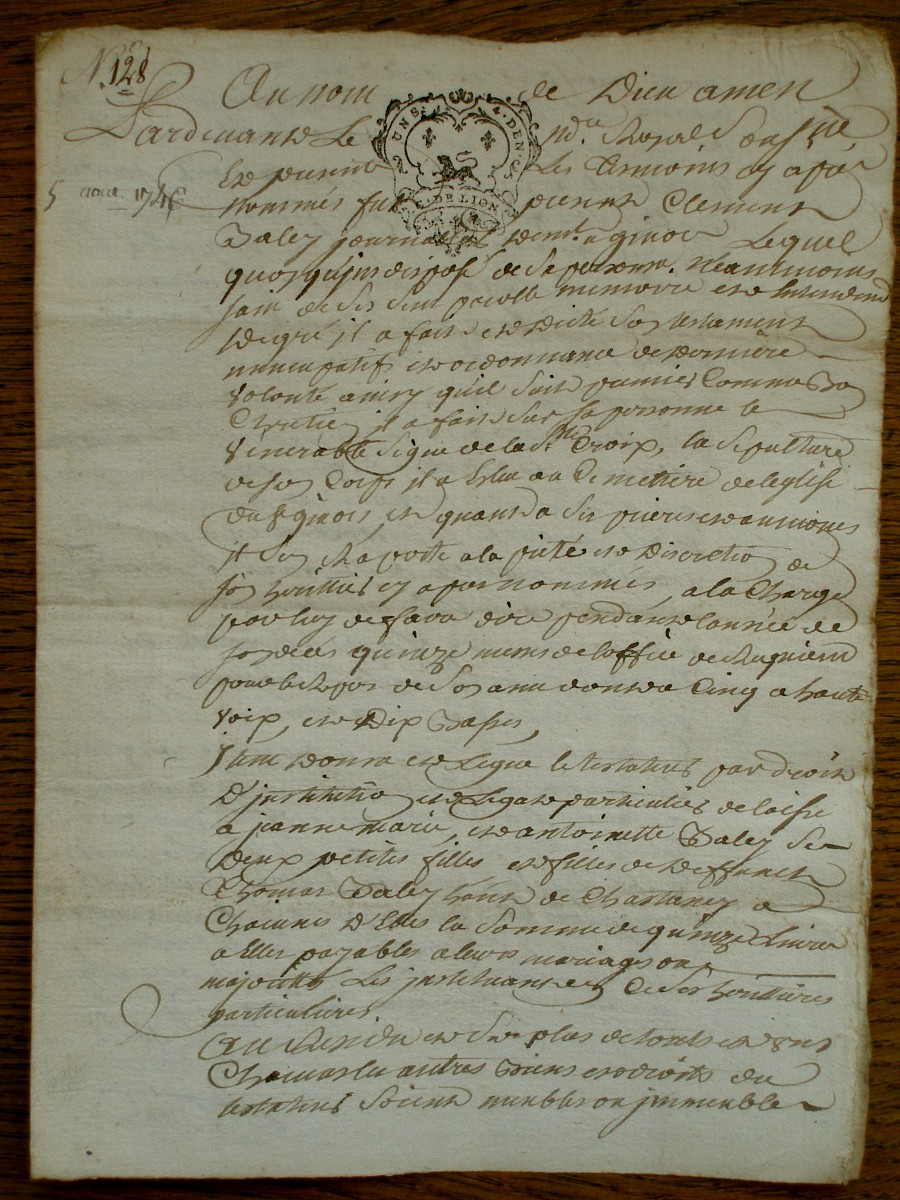 N.° 128
Au nom de Dieu amen
Pardevant Le Nd.re Royal soussigné
Et présents Les Témoins cy après
5 aout 174
nommés fut présent Clement
UN S. 4. DEN.
G. DE LION
Baley journalier demt. a ginoz Lequel
quoyqu'indisposé de sa personne. Neantmoins
sain de ses sens parolle memoire et Entendement
De gré il a fait et dicté son testament
nuncupatif et ordonnance de derniere
volonté ainsy qu'il suit premier Comme bon
Chretien il a fait sur sa personne le
venerable signe de la Ste. Croix, la sepulture
de son Corps il a Eslue au Cemettiere de l'eglise
du ginois, et quant a ses prieres et aumones
il s'en raporte a la pieté et discretion de
son heritier cy apres nommés, a la Charge
par luy de faire dire pendant l'année de
son déces quinze messes de l'office de Requiem
pour le Repos de son ame dont Cinq a haute
voix, et Dix Basses,
Item donne et Legue le testateur par droit
D'institution et Legat particulier delaisse
a jeanne marie, et antoinette Baley ses
deux petites filles et filles de deffunct
Thomas Baley de a
Chacunes D'Elles la somme de quinze Livres
a Elles payables a leurs mariages ou
majorités Les instituant ses heritieres
particulieres.
Au Residu et surplus de touts et uns
Chacuns les autres Biens et droits du
testateur soient meubles ou immeubles